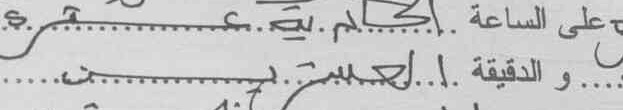 على الساعة الحادية عشرة
و الدقيقة العشرين